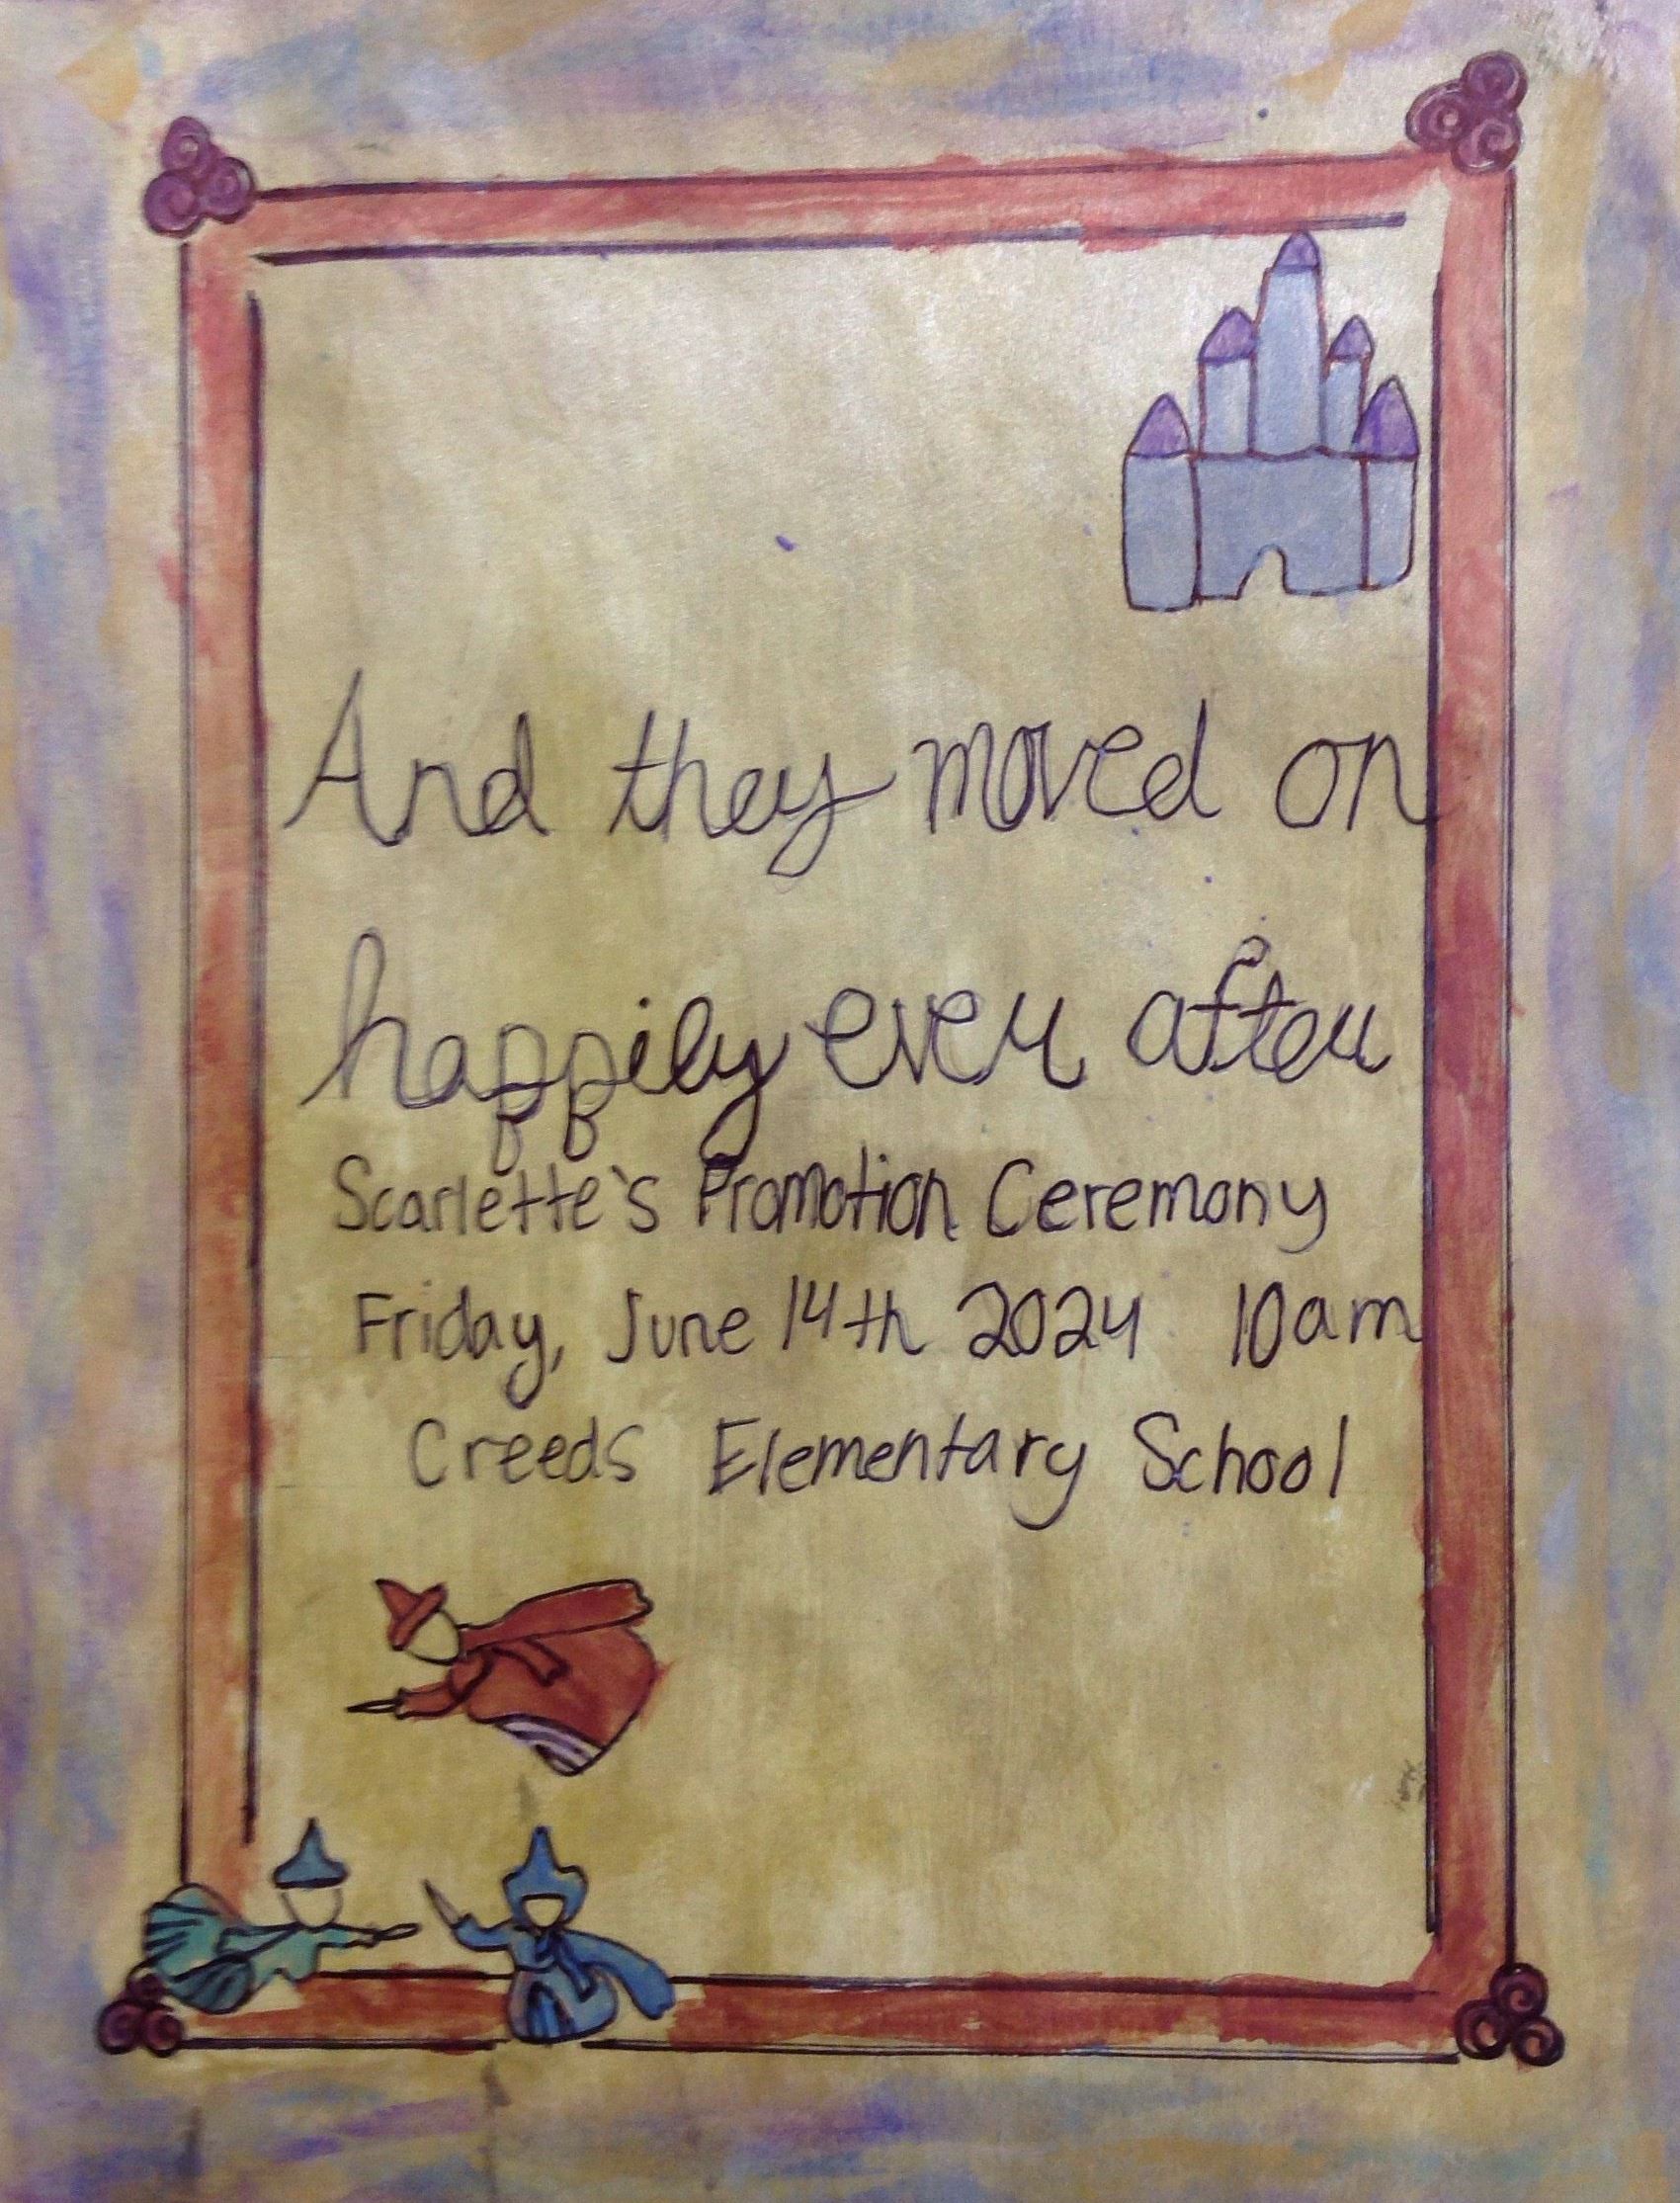 And they moved on
happily ever after
Scarlette's Promotion Ceremony
Friday, June 14th 2024 10am
Creeds Elementary School